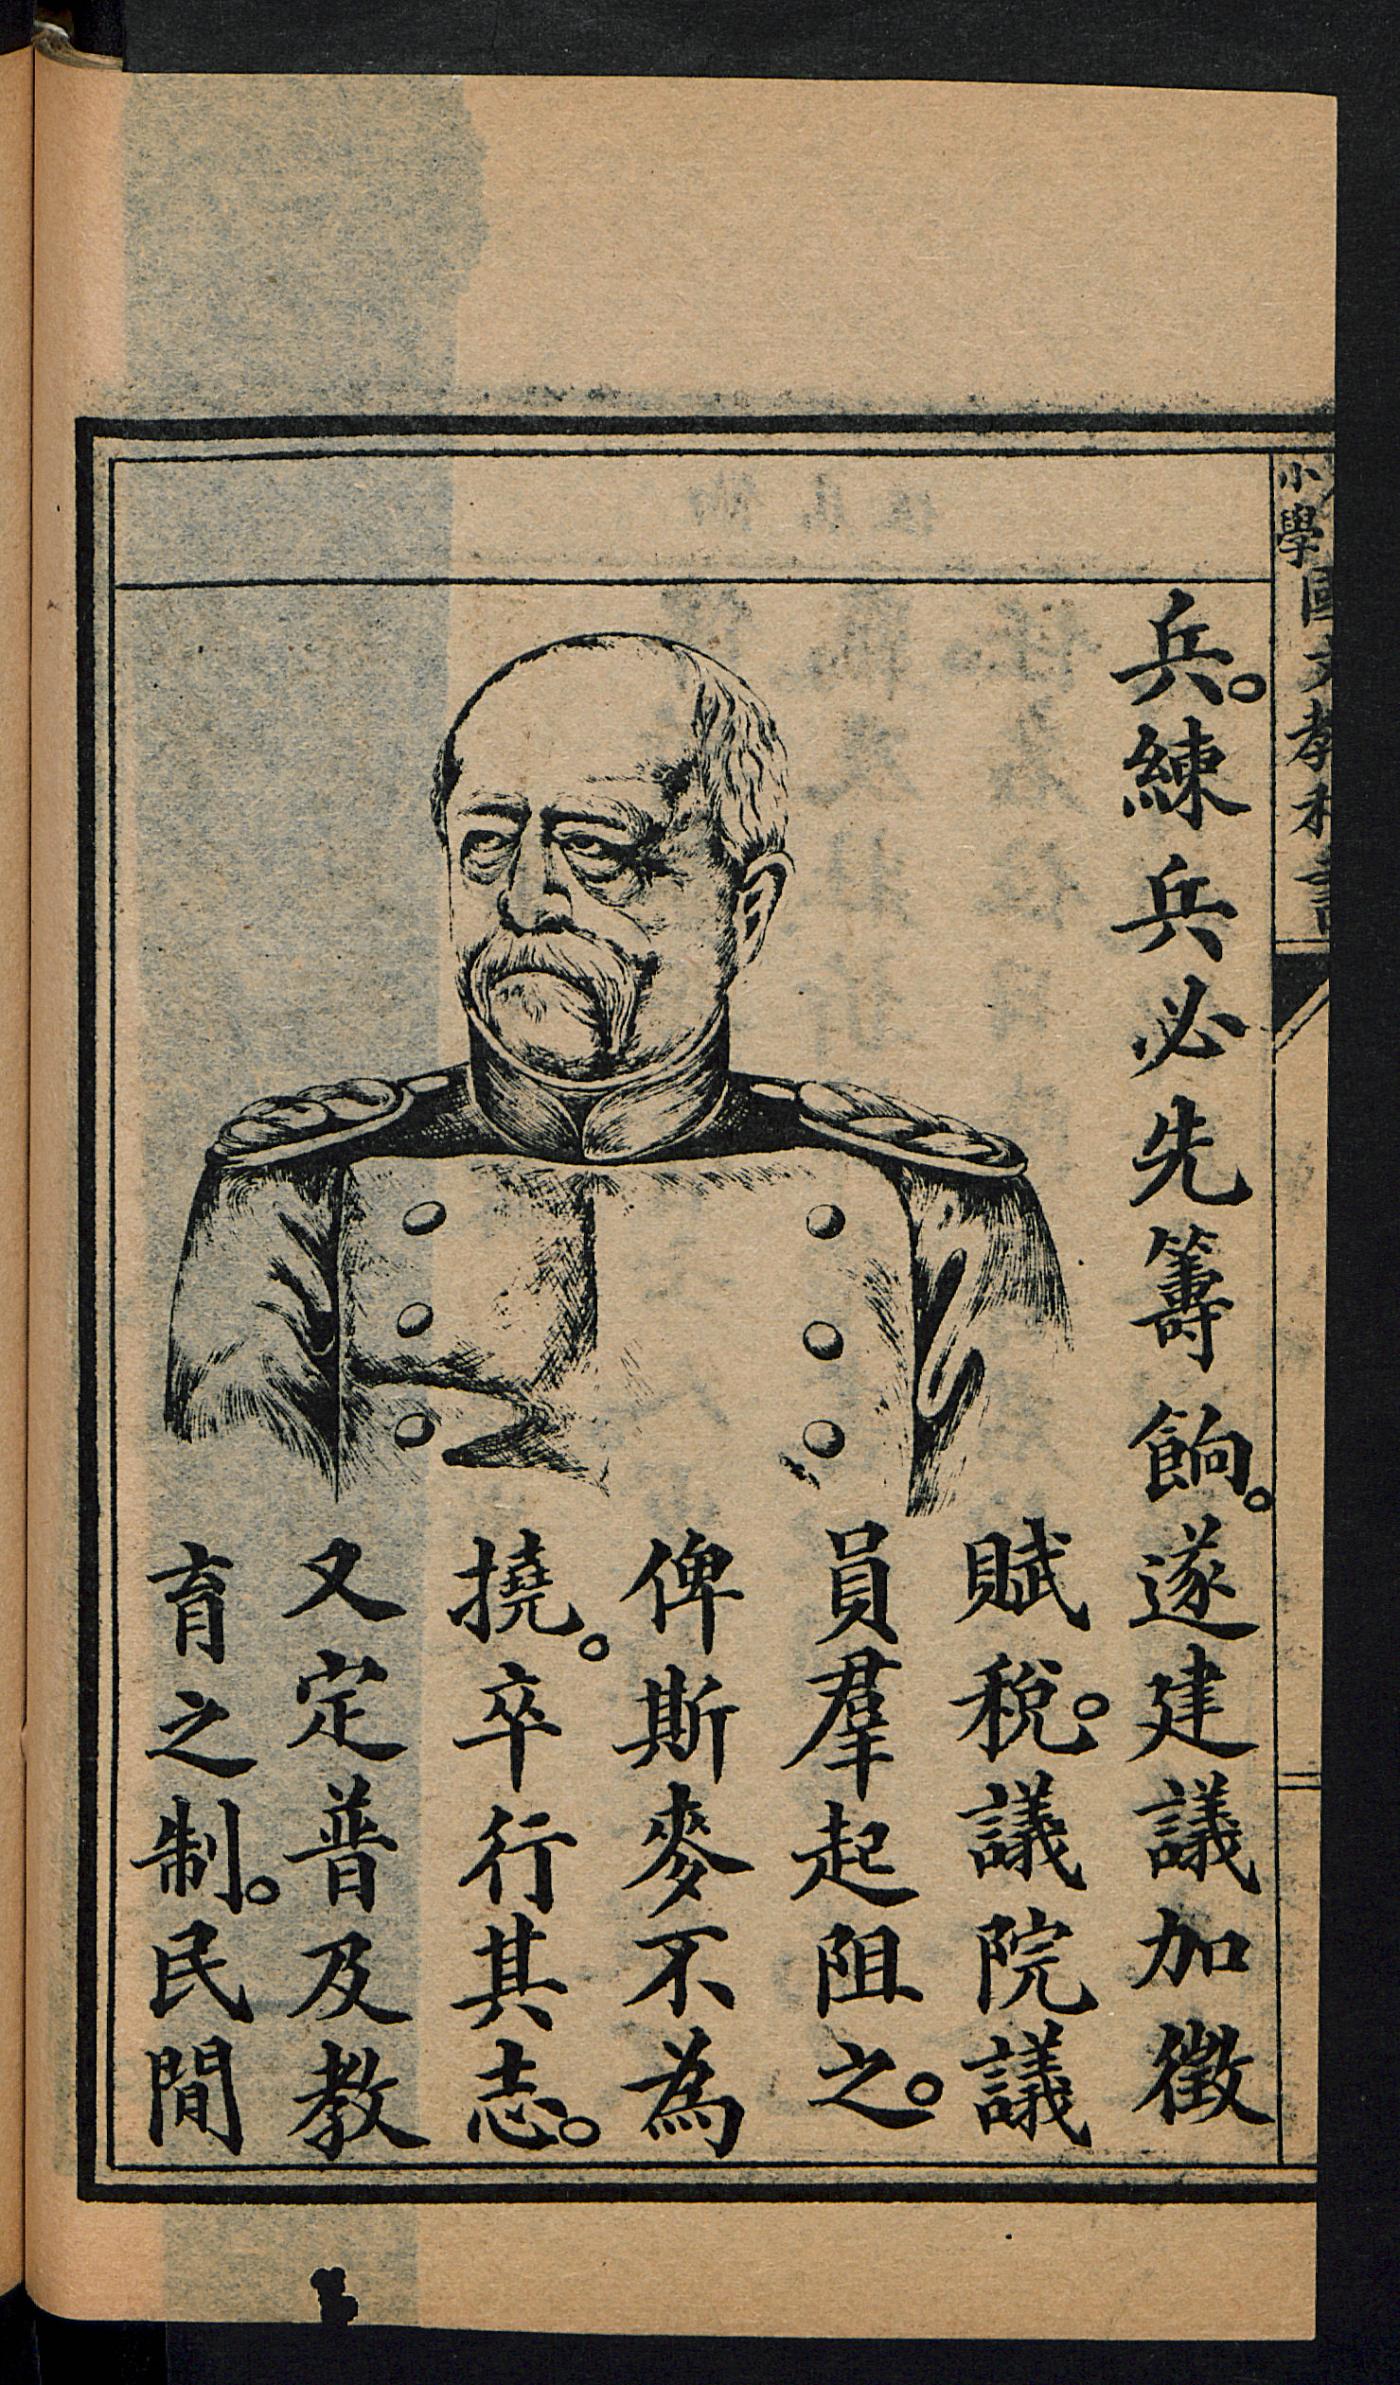 兵。練兵必先籌餉。遂建議加徵
賦稅。議院議
員羣起阻之。
俾斯麥不為
撓。卒行其志。
又定普及教
育之制。民間
小學國文教科書